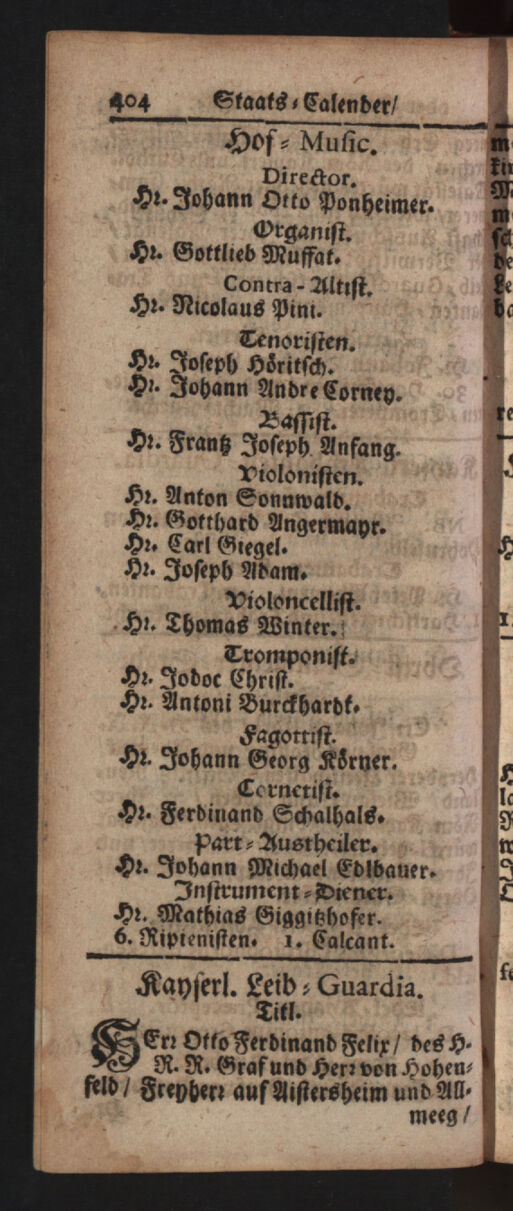 404 Staats-Calender/
Hof-Music.
Director.
Hr. Johann Otto Ponheimer.
Organist.
Hr. Gottlieb Muffat.
Contra-Altist.
Hr. Nicolaus Pini.
Tenoristen.
Hr. Joseph Höritsch.
Hr. Johann Andre Corney.
Bassist.
Hr. Frantz Joseph Anfang.
Violonisten.
Hr. Anton Sonnwald.
Hr. Gotthard Angermayr.
Hr. Carl Giegel.
Hr. Joseph Adam.
Violoncellist.
Hr. Thomas Winter.
Tromponist.
Hr. Jodoc Christ.
Hr. Antoni Burckhardt.
Fagottist.
Hr. Johann Georg Körner.
Cornetist.
Hr. Ferdinand Schalhals.
Part-Austheiler.
Hr. Johann Michael Edlbauer.
Instrument-Diener.
Hr. Mathias Giggitzhofer.
6. Ripienisten. 1. Calcant.
Kayserl. Leib-Guardia.
Titl.
HErr Otto Ferdinand Felix/ des H.
R. R. Graf und Herr von Hohen-
feld/ Freyherr auf Aistersheim und All-
meeg/